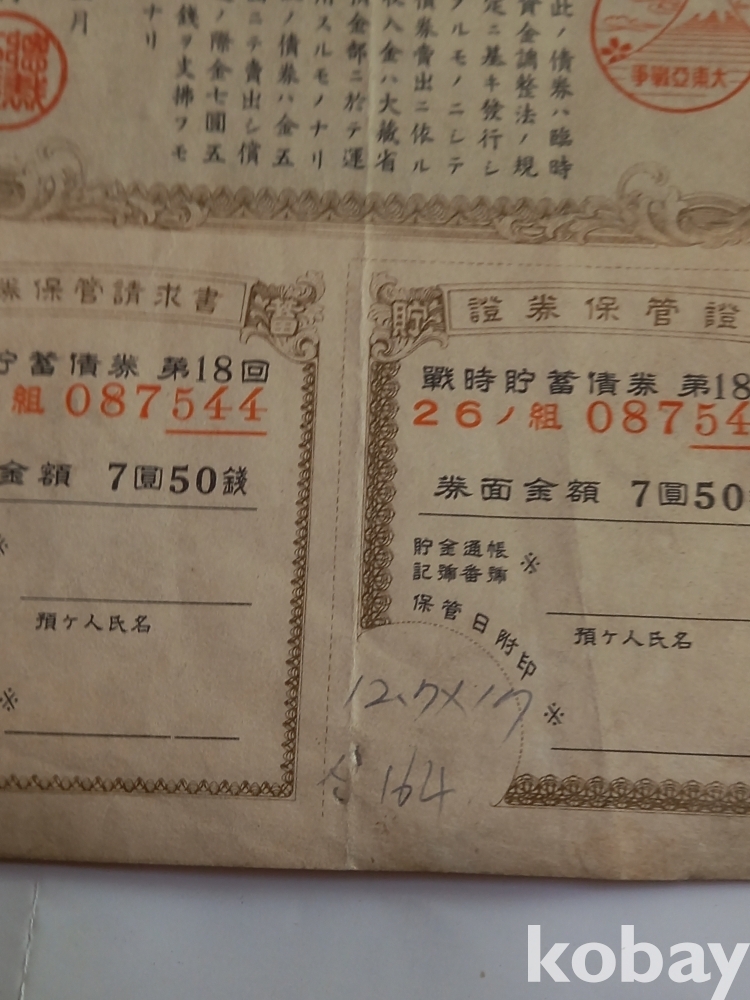 大東亞戰爭
此ノ債券ハ臨時
資金調整法ノ規
定ニ基キ發行シ
タルモノニシテ
債券賣出ニ依ル
收入金ハ大藏省
金部ニ於テ運
用スルモノナリ
ノ債券ハ金五
ニテ賣出シ償
ノ際金七圓五
錢ヲ支拂フモ
ナリ
月
券保管請求書
蓄
貯蓄債券 第18回
組 087544
金額 7圓50錢
※
預ケ人氏名
※
貯
證券保管證
戰時貯蓄債券 第18
26ノ組 08754
券面金額 7圓50
貯金通帳
記號番號 ※
保管日附印
預ケ人氏名
※
12.7×17
164
kobay